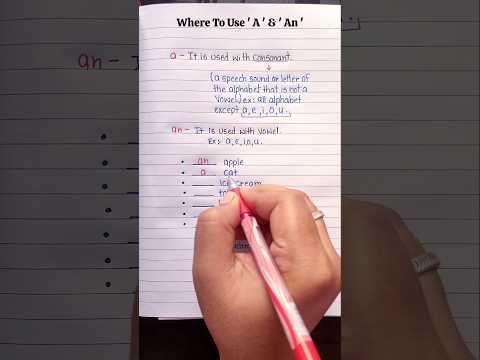 Where To Use ' A ' & ' An '
a - It is used with consonant.
(a speech sound or letter of
the alphabet that is not a
vowel) ex: all alphabet
except a, e, i, o, u.
an - It is used with vowel.
Ex: a, e, i, o, u.
• an apple
• a cat